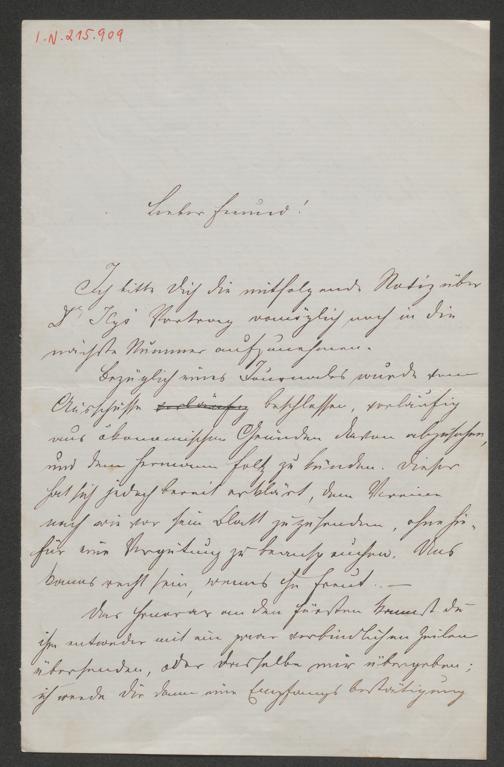 I.N. 215.909
Lieber Freund!
Ich bitte Dich die mitfolgende Notiz über
Dr Vortrag womöglich noch in die
nächste Nummer aufzunehmen.
Bezüglich eines Journales wurde vom
Ausschusse vorläufig beschlossen, vorläufig
aus ökonomischen Gründen davon abzusehen,
und dem Hermann zu künden. Dieser
hat sich jedoch bereit erklärt, dem Vereine
nach wie vor sein Blatt zuzusenden, ohne hie-
für eine Vergütung zu beanspruchen. Uns
kanns recht sein, wenns ihn freut. –
Das Honorar an den Fürsten kannst du
ihm entweder mit ein paar verbindlichen Zeilen
übersenden, oder dasselbe mir übergeben;
ich werde Dir dann eine Empfangsbestätigung